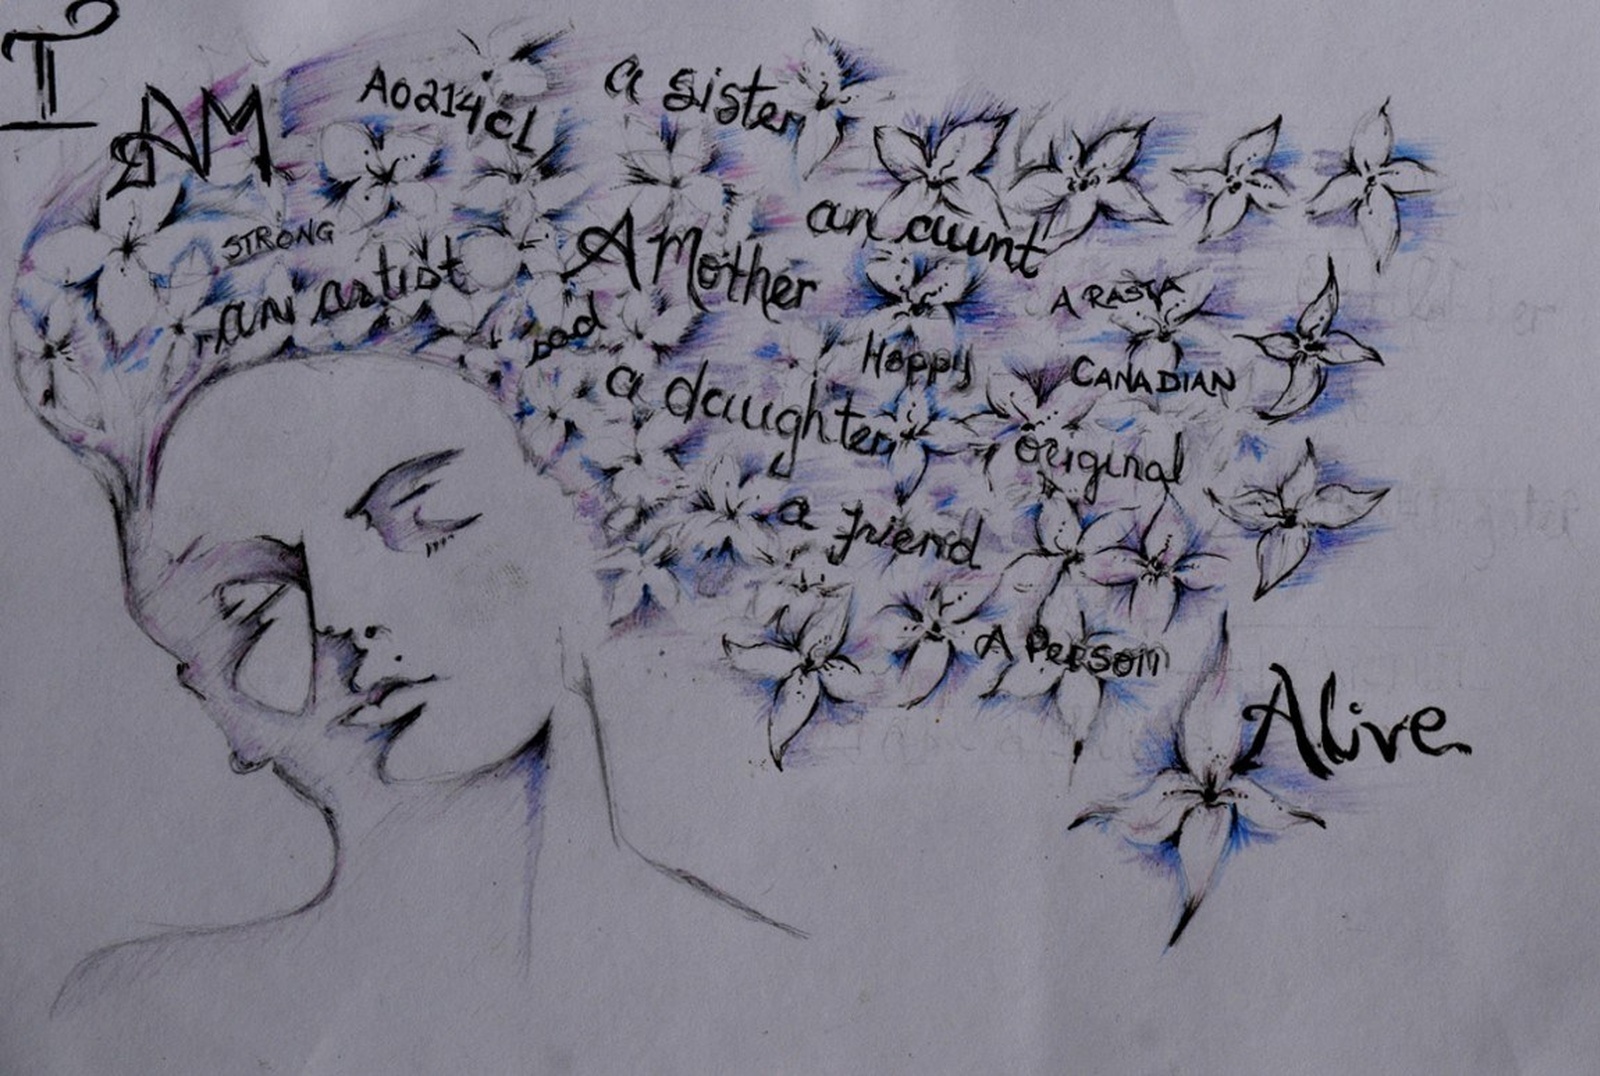 I
AM
A0214cl
a sister
STRONG
an artist
sad
A Mother
an aunt
A RASTA
Happy
CANADIAN
a daughter
original
a friend
A Person
Alive